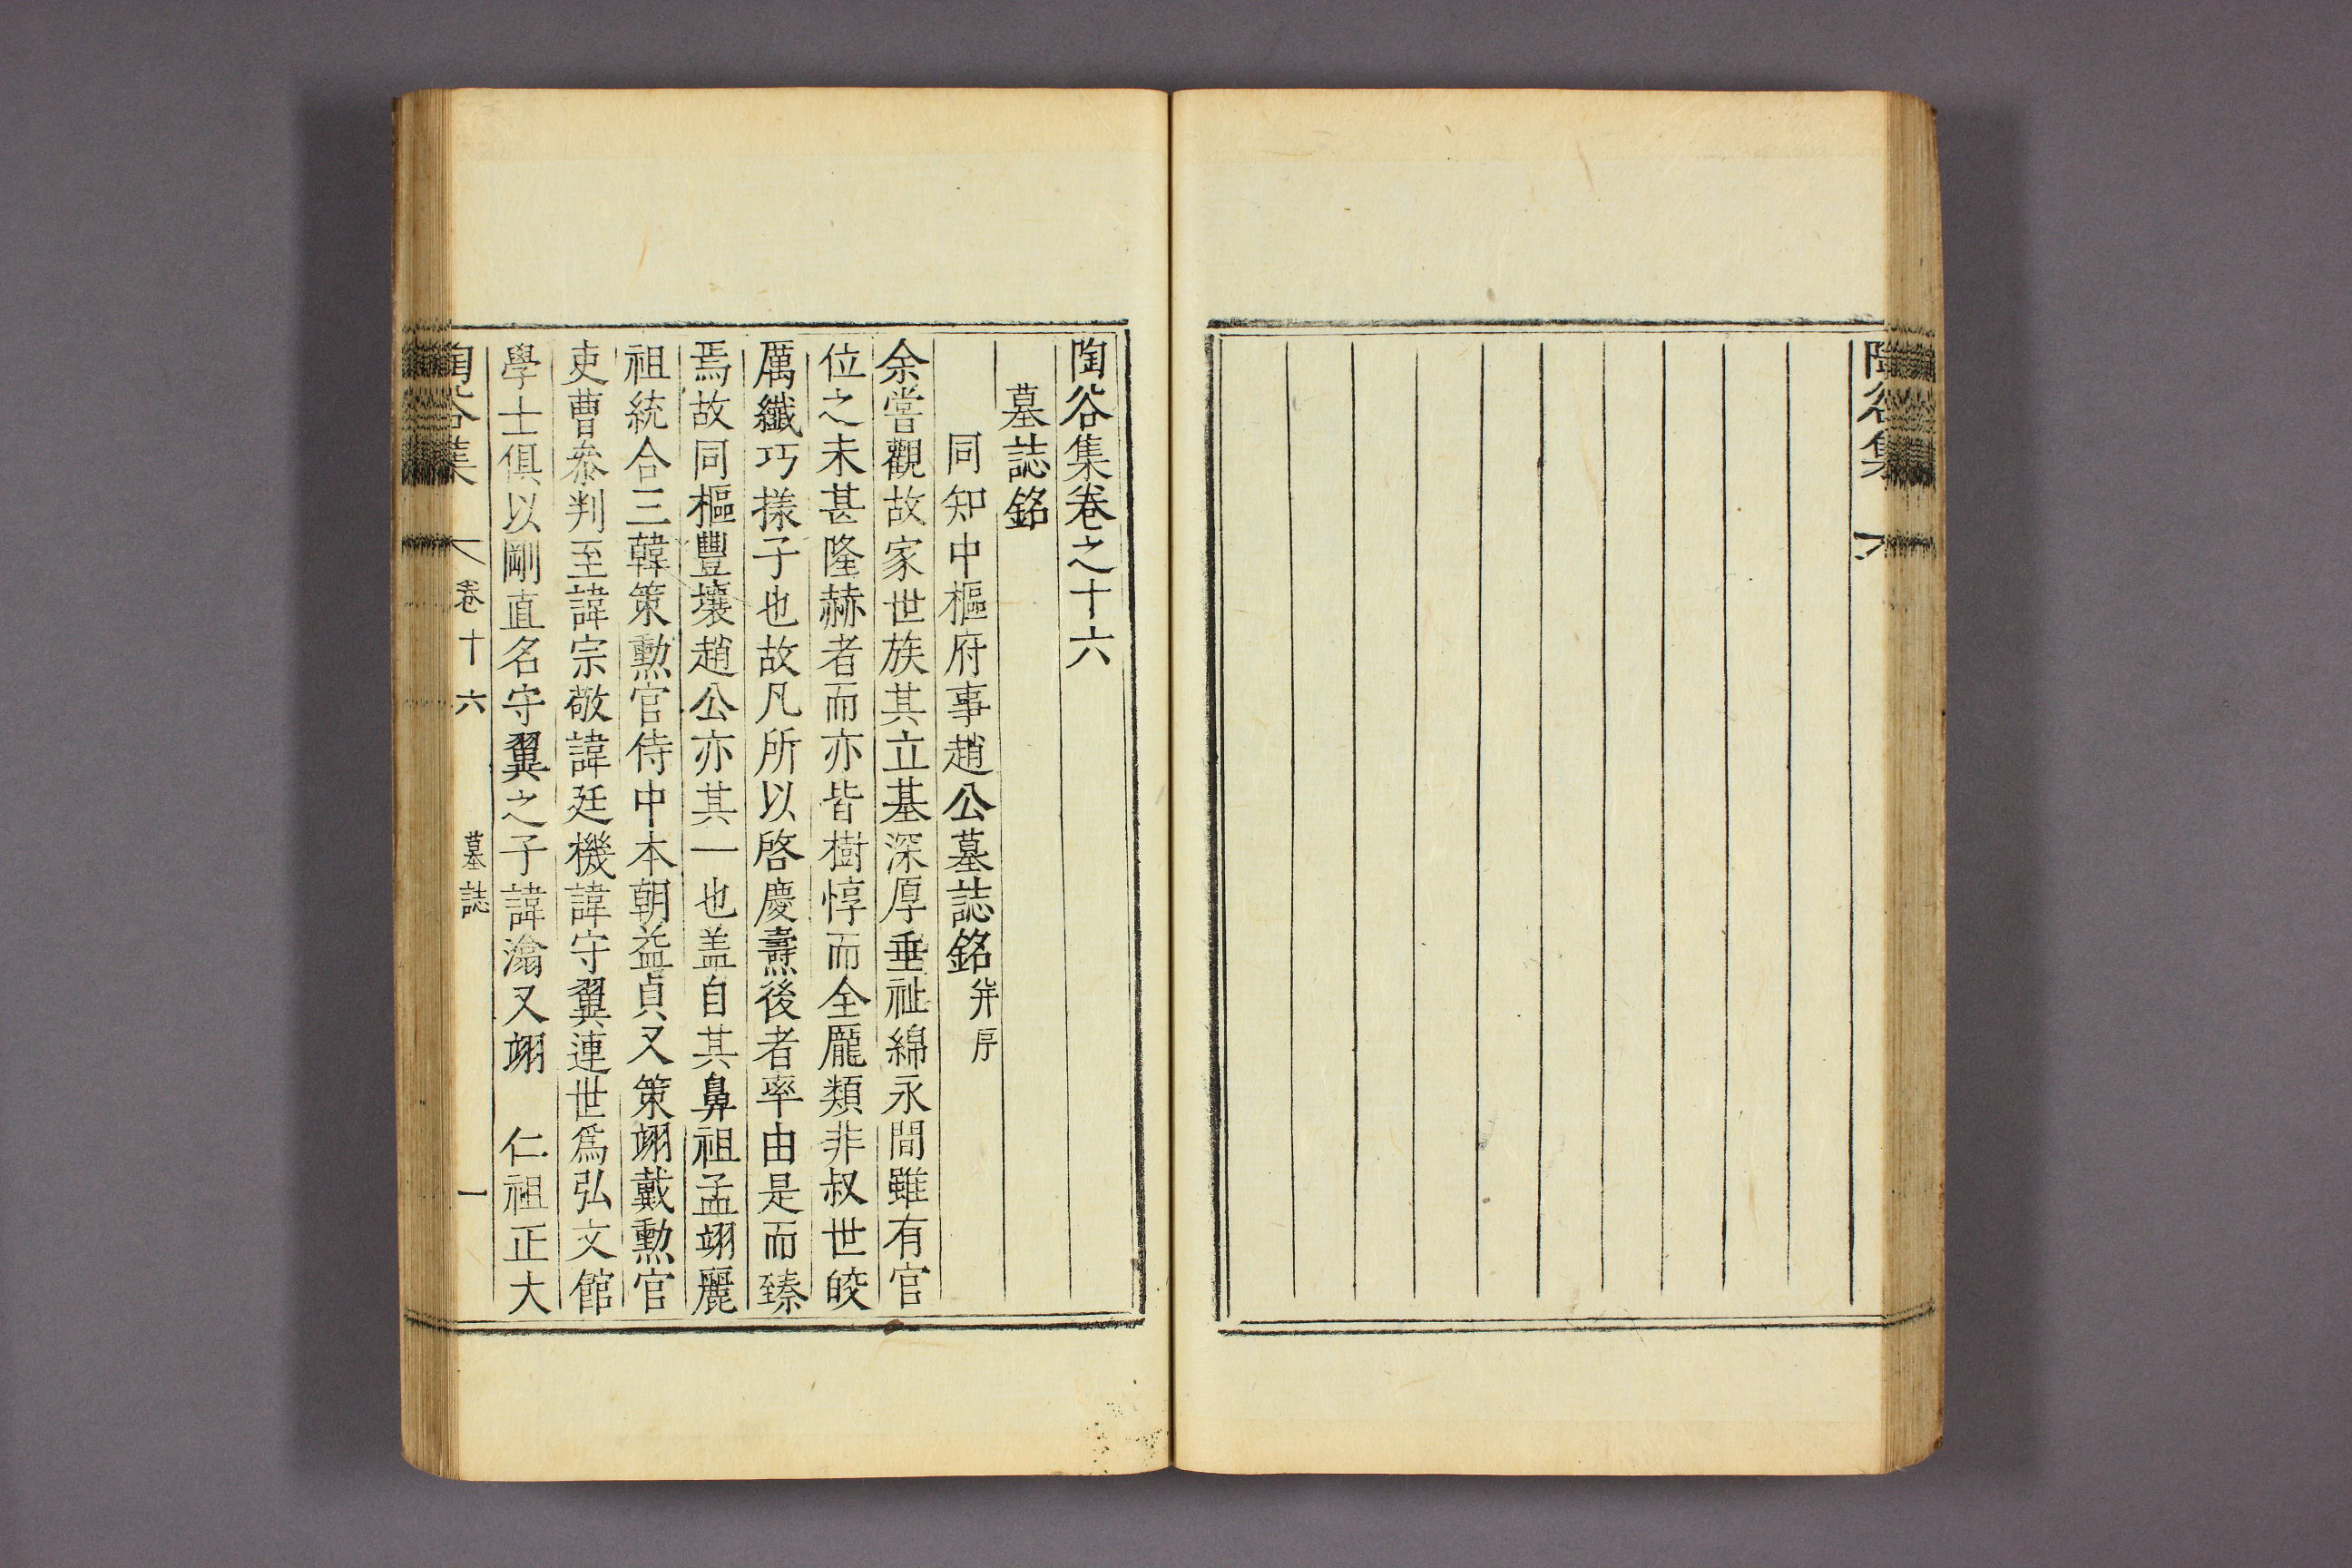 陶谷集
陶谷集卷之十六
墓誌銘
同知中樞府事趙公墓誌銘 幷序
余嘗觀故家世族其立基深厚垂祉綿永間雖有官
位之未甚隆赫者而亦皆樹惇而全龎類非叔世皎
厲纖巧㨾子也故凡所以啓慶燾後者率由是而臻
焉故同樞豐壤趙公亦其一也盖自其鼻祖孟翊麗
祖統合三韓策勳官侍中本朝益貞又策翊戴勳官
吏曹叅判至諱宗敬諱廷機諱守翼連世爲弘文館
學士俱以剛直名守翼之子諱滃又翊　仁祖正大
陶谷集 卷十六 墓誌 一